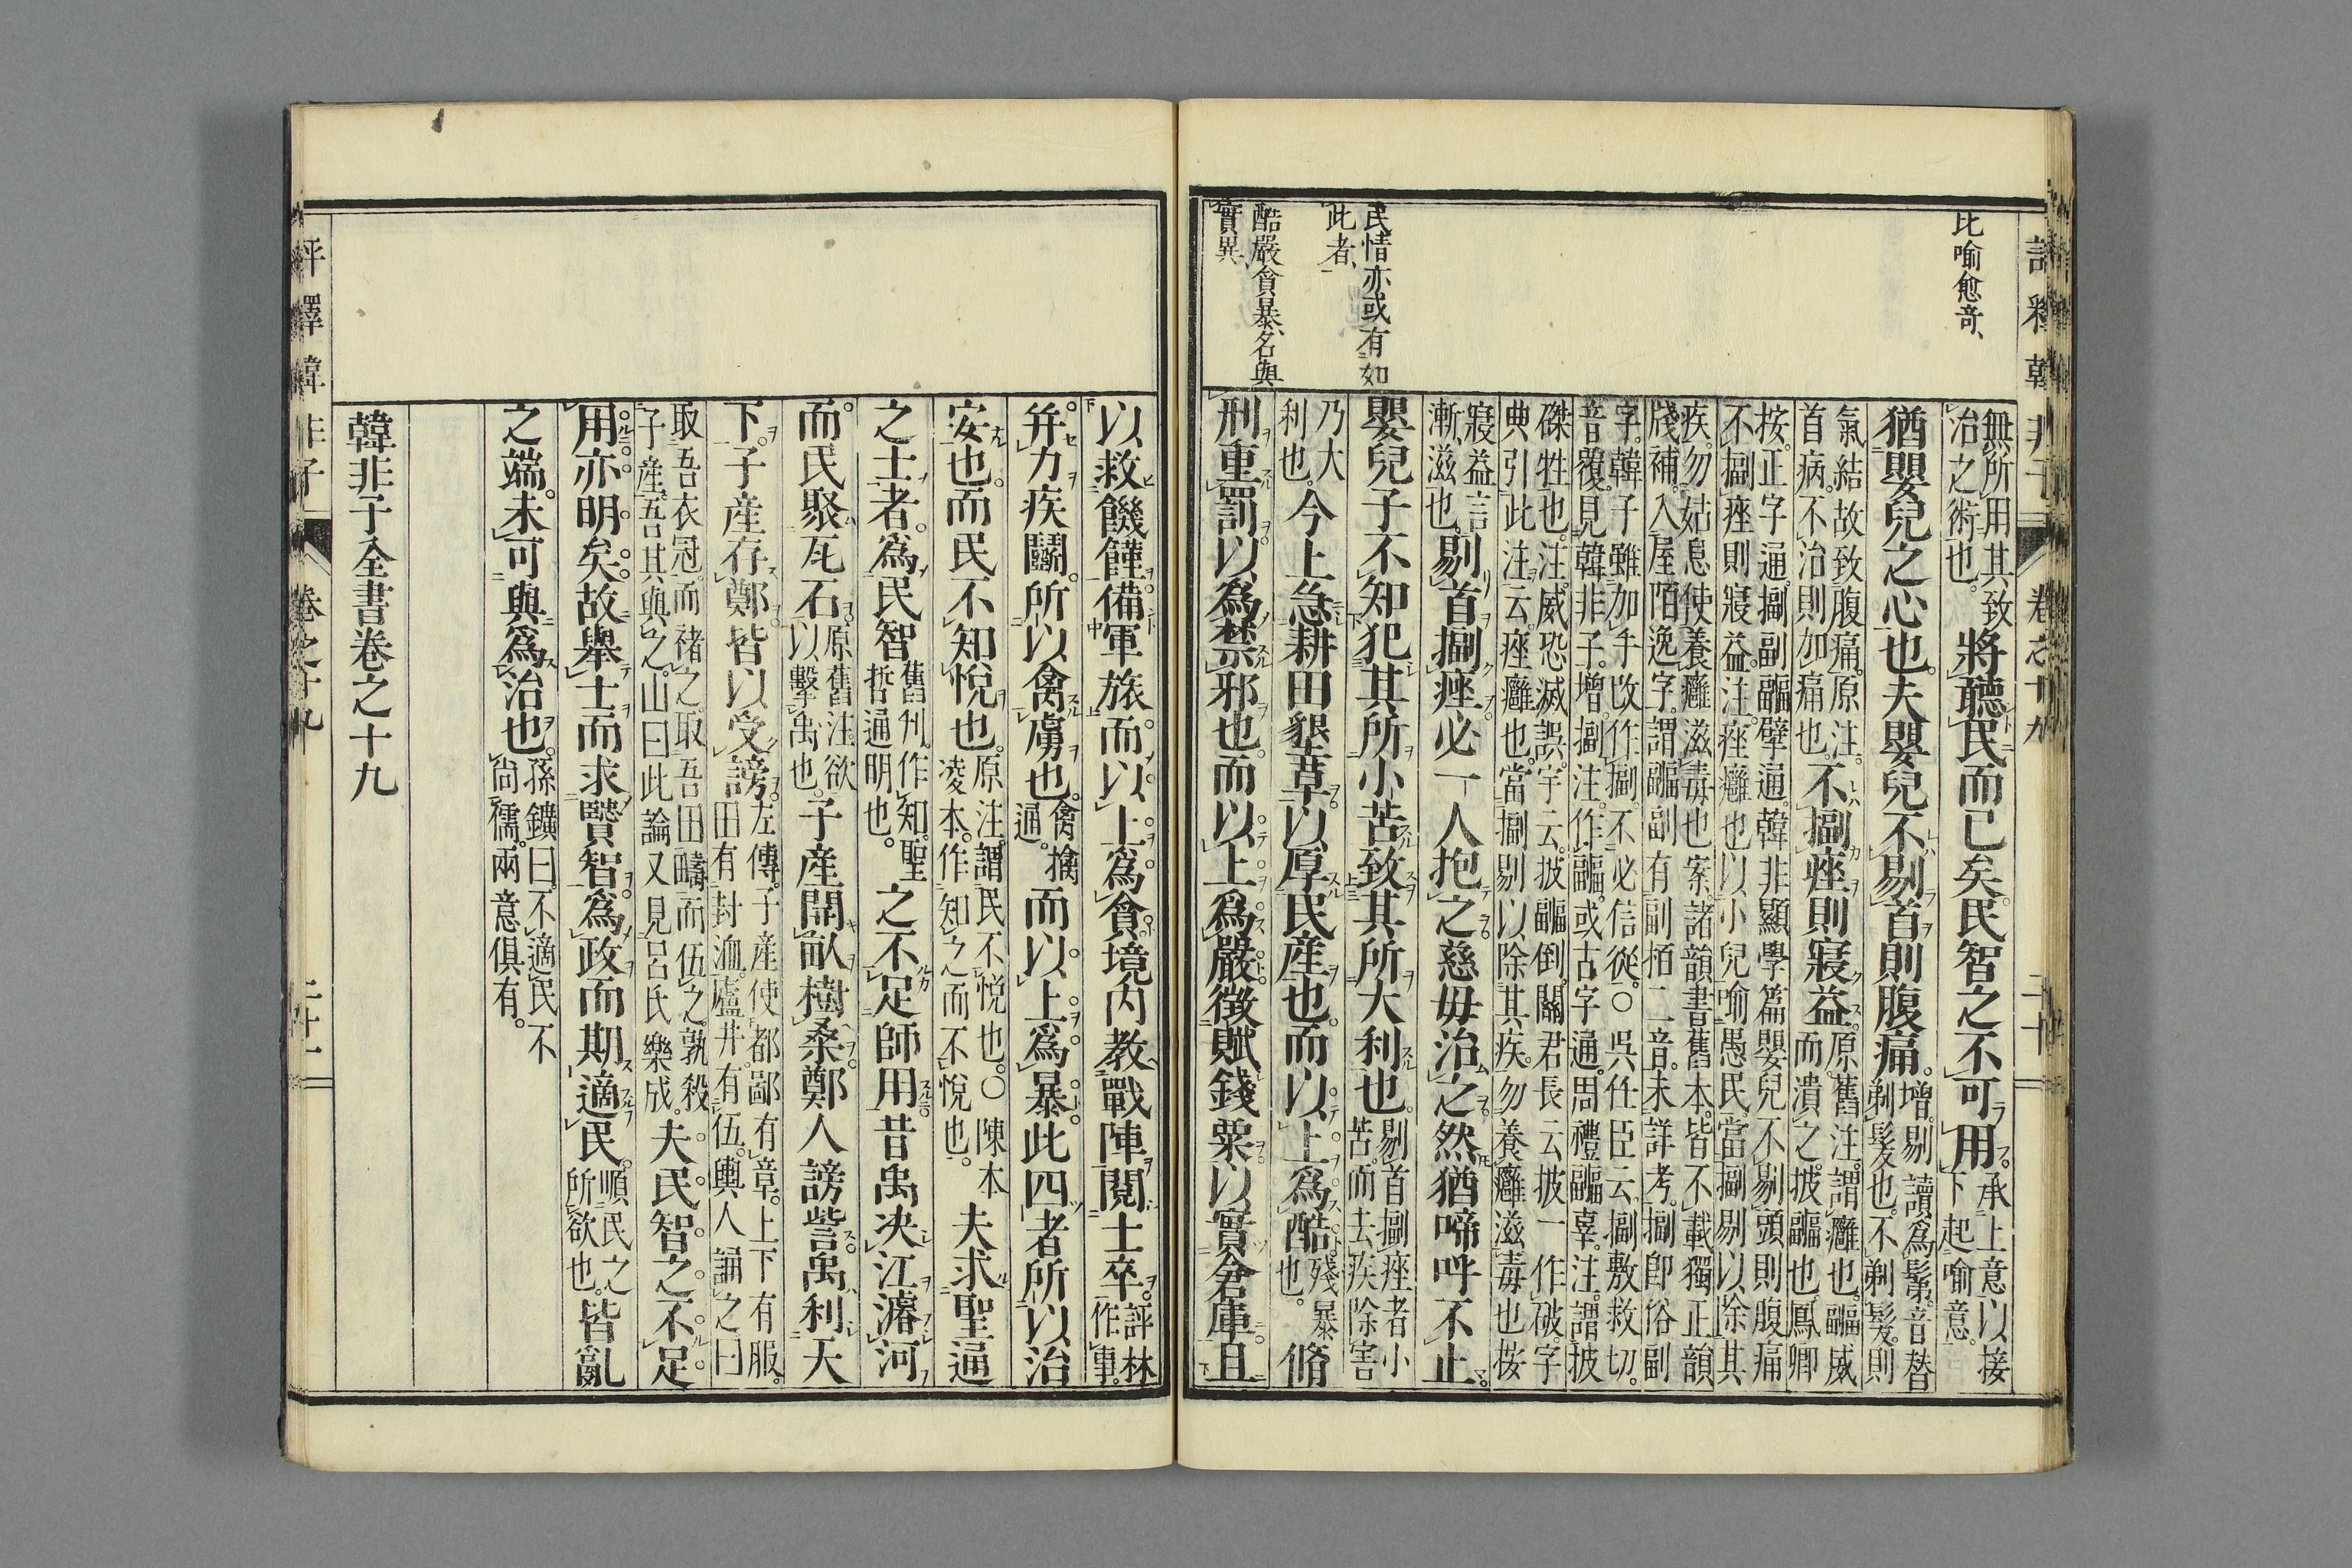 評釋韓非子 卷之十九 二十
比喻愈奇、
民情亦或有如
此者、
酷嚴貪暴名與
實異
無所用其致
治之術也。
將聽民而已矣。民智之不可用。
承上意以接
下起喻意。
猶嬰兒之心也。夫嬰兒不剔首則腹痛。
增。剔讀爲鬄。音替
剃髮也。不剃髮。則
氣結故致腹痛。原注。
首病。不治則加痛也。
不揊痤則寖益。
原舊注。謂癰也。疈威
而潰之。披疈也。鳳卿
按。正字通。揊副疈擘通。韓非顯學篇。嬰兒不剔頭則腹痛
不揊痤則寢益。注。痤癰也。以小兒喻愚民。當揊剔以除其
疾。勿姑息使養癰滋毒也案。諸韻書舊本。皆不載。獨正韻
牋補。入屋陌逸字。謂疈副有副拍二音。未詳考。揊卽俗副
字。韓子雖加手改作揊。不必信從。〇吳任臣云。揊敷救切。
音覆。見韓非子。增。揊注。作疈。或古字通。周禮疈辜。注。謂披
磔牲也。注。威恐滅誤。宇云。披疈倒。關君長云披一作破。字
典引此注云。痤癰也。當揊剔以除其疾。勿養癰滋毒也按
寢益言
漸滋也。
剔首揊痤必一人抱之慈母治之。然猶啼呼不止。
嬰兒子不知犯其所小苦致其所大利也。
剔首揊痤者小
苦。而去疾除害
乃大
利也。
今上急耕田墾草。以厚民產也。而以上爲酷。
殘暴
也。
脩
刑重罰。以爲禁邪也。而以上爲嚴。徵賦錢粟。以實倉庫。且
以救饑饉備軍旅。而以上爲貪。境內教戰陣。閱士卒。
評林
作事。
幷力疾鬭。所以禽虜也。
禽擒
通。
而以上爲暴。此四者所以治
安也。而民不知悅也。
原注。謂民不悅也。〇陳本
凌本。作知之而不悅也。
夫求聖通
之士者。爲民智
舊刋。作知。聖
哲通明也。
之不足師用。昔禹決江濬河
而民聚瓦石。
原舊注欲
以擊禹也。
子產開畝樹桑。鄭人謗訾。禹利天
下。子產存鄭。皆以受謗。
左傳。子產使都鄙有章。上下有服。
田有封洫。廬井有伍。輿人誦之曰
取吾衣冠。而褚之。取吾田疇而伍之。孰殺
子產。吾其與之。山曰此論又見呂氏樂成。
夫民智之不足
用。亦明矣。故舉士而求賢智。爲政而期適民。
順民之
所欲也。
皆亂
之端。未可與爲治也。
孫鑛曰。不適民不
尙儒。兩意俱有。
韓非子全書卷之十九
評釋韓非子 卷之十九 二十一